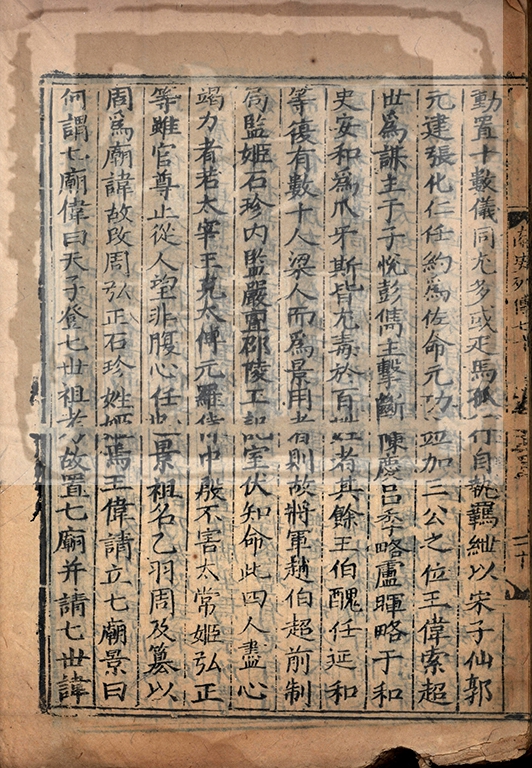 動置十數儀同尤多或疋馬孤行自執羈紲以宋子仙郭
元建張化仁任約爲佐命元功並加三公之位王偉索超
世爲謀主于子悅彭儁主擊斷陳慶呂季略盧暉略于和
史安和爲爪牙斯皆尤毒於百姓者其餘王伯醜任延和
等復有數十人梁人而爲景用者則故將軍趙伯超前制
局監姬石珍內監嚴亶邵陵王記室伏知命此四人盡心
竭力者若太宰王克太傅元羅侍中殷不害太常姬弘正
等雖官尊止從人望非腹心任也景祖名乙羽周及篡以
周爲廟諱故改周弘正石珍姓姬焉王偉請立七廟景曰
何謂七廟偉曰天子祭七世祖考故置七廟并請七世諱
南史列傳七十